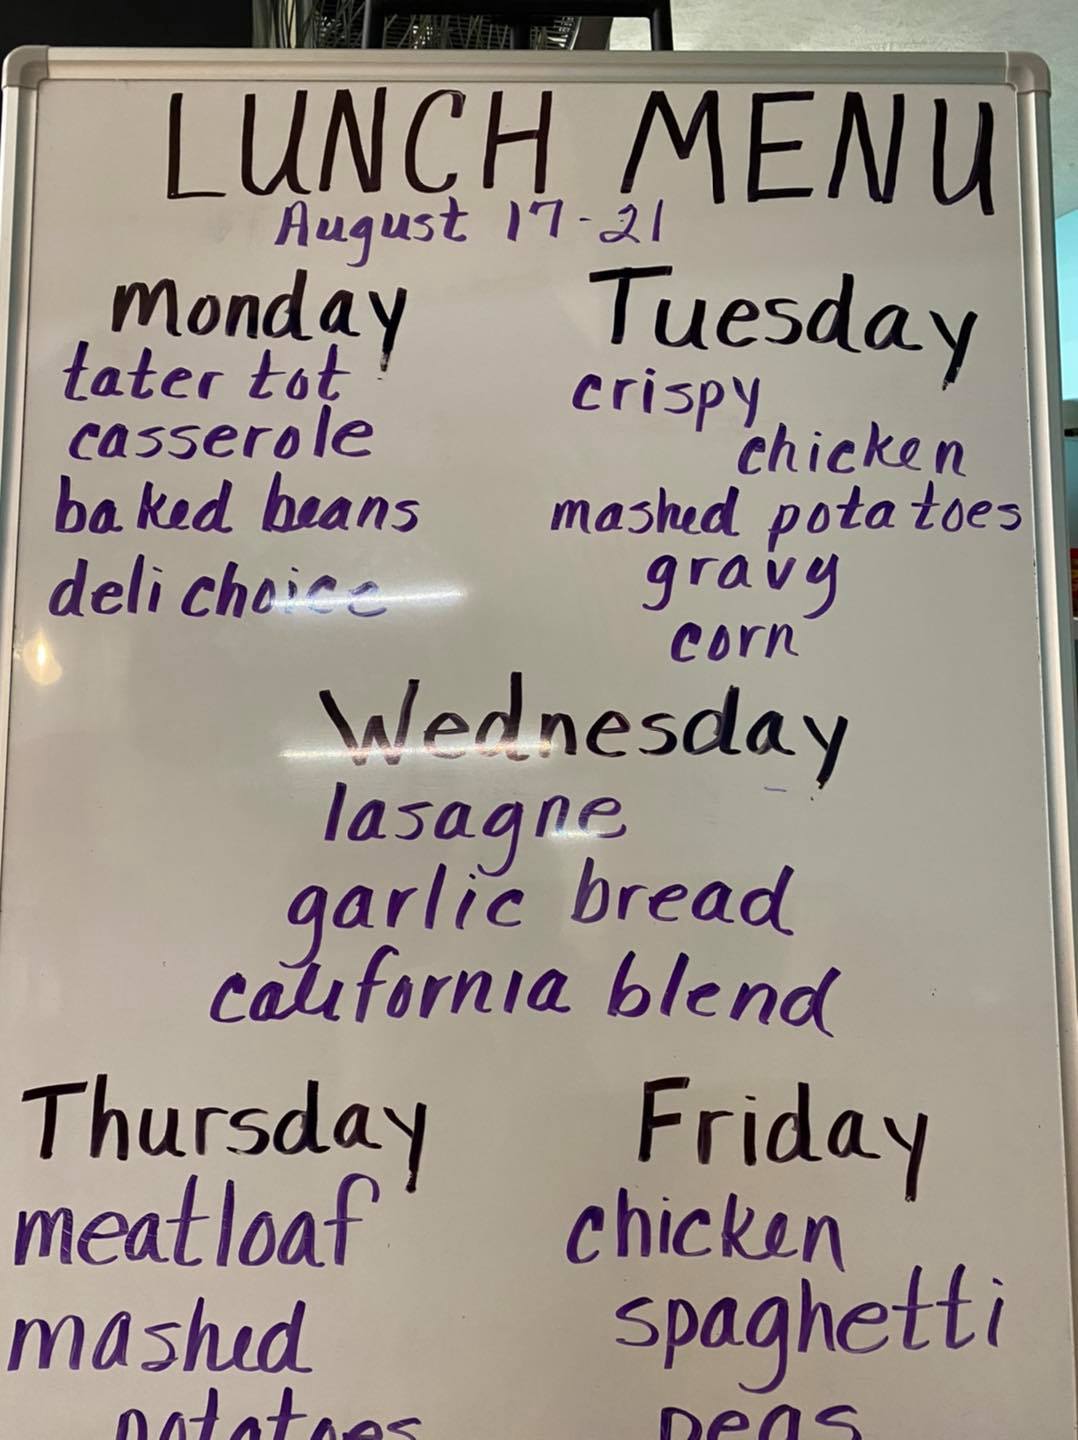 LUNCH MENU
August 17-21
Monday
tater tot
casserole
baked beans
deli choice
Tuesday
crispy
chicken
mashed potatoes
gravy
corn
Wednesday
lasagne
garlic bread
california blend
Thursday
meatloaf
mashed
potatoes
Friday
chicken
spaghetti
peas